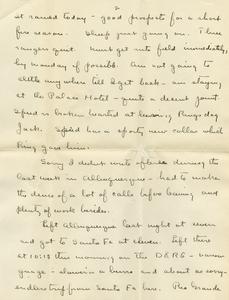 2
it rained today - good prospects for a short
fire season. Sheep just going on. Three
rangers quit. Must get into field immediately,
by Monday if possible. Am not going to
settle anywhere till I get back - am staying
at the Palace Motel - quite a decent joint.
Speed is broken hearted at leaving Ringy dog
Jack. Speed has a sporty new collar which
Ring gave him.
Sorry I didn't write oftener during the
last week in Albuquerque - had to make
the deuce of a lot of calls before leaving and
plenty of work besides.
Left Albuquerque last night at seven
and got to Santa Fe at eleven. Left there
at 10:15 this morning on the D&RG - narrow
gauge - slower'n a burro and about as
endless trip from Santa Fe here. Rio Grande